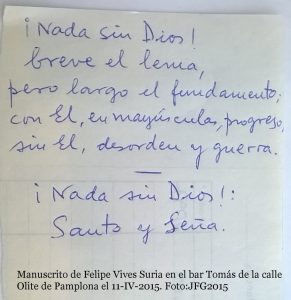 ¡Nada sin Dios!
breve el lema,
pero largo el fundamento;
con Él, en mayúsculas, progreso,
sin Él, desorden y guerra.
¡Nada sin Dios!:
Santo y Seña.
Manuscrito de Felipe Vives Suria en el bar Tomás de la calle
Olite de Pamplona el 11-IV-2015. Foto:JFG2015